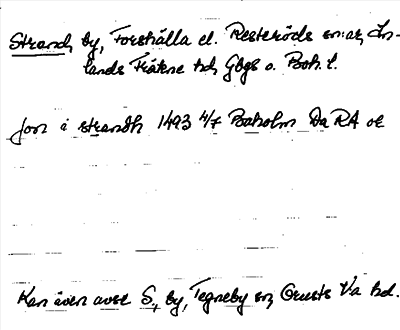 Strand, by, Forshälla el. Resteröds sn:ar, In-
lands Fräkne hd, Gbgs o. Boh. l.
Jon i strandh 1493 4/7 Baaholm Da RA or
Kan även avse S, by, Tegneby sn, Orusts V:a hd.